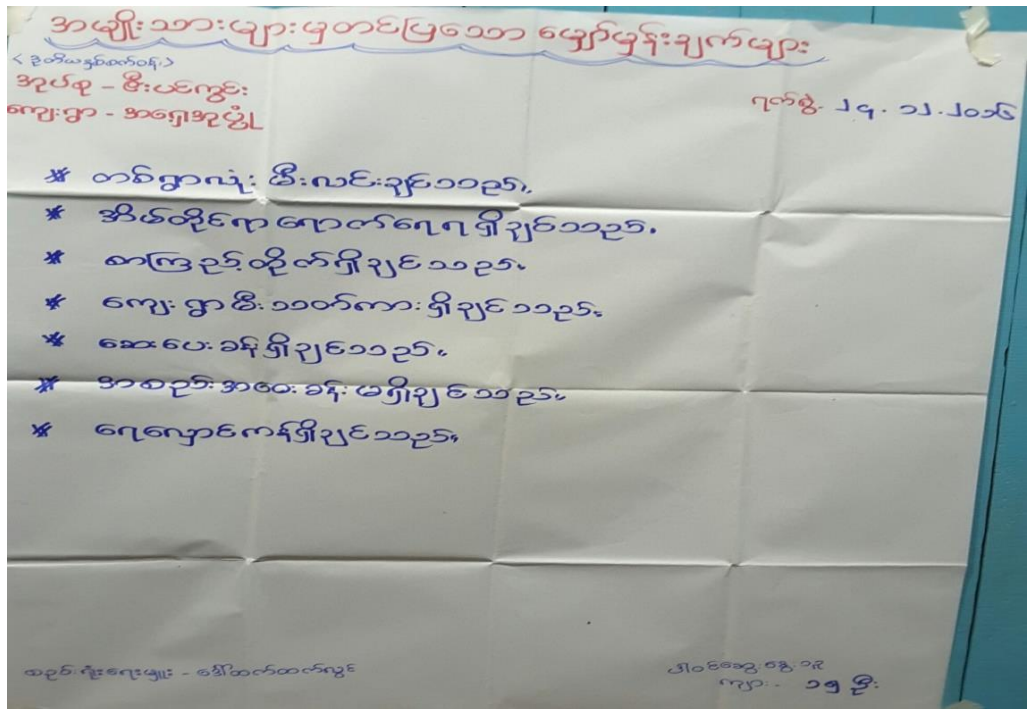 အမျိုးသားများမှတင်ပြသော မျှော်မှန်းချက်များ
< ဒုတိယနှစ်ပတ်ဝန်း >
အုပ်စု - မီးပင်ကွင်း
ကျေးရွာ - အရှေ့အူယွံ
ရက်စွဲ. ၂၄.၁၂.၂၀၁၆
* တစ်ရွာလုံး မီးလင်းချင်သည်။
* အိမ်တိုင်ရာရောက်ရေရရှိချင်သည်။
* စာကြည့်တိုက်ရှိချင်သည်။
* ကျေးရွာမီးသတ်ကားရှိချင်သည်။
* ဆေးပေးခန်းရှိချင်သည်။
* အစည်းအဝေးခန်းမရှိချင်သည်။
* ရေလှောင်ကန်ရှိချင်သည်။
စည်းရုံးရေးမှူး - ဒေါ်ထက်ထက်လွင်
ကျား - ၁၅ ဦး